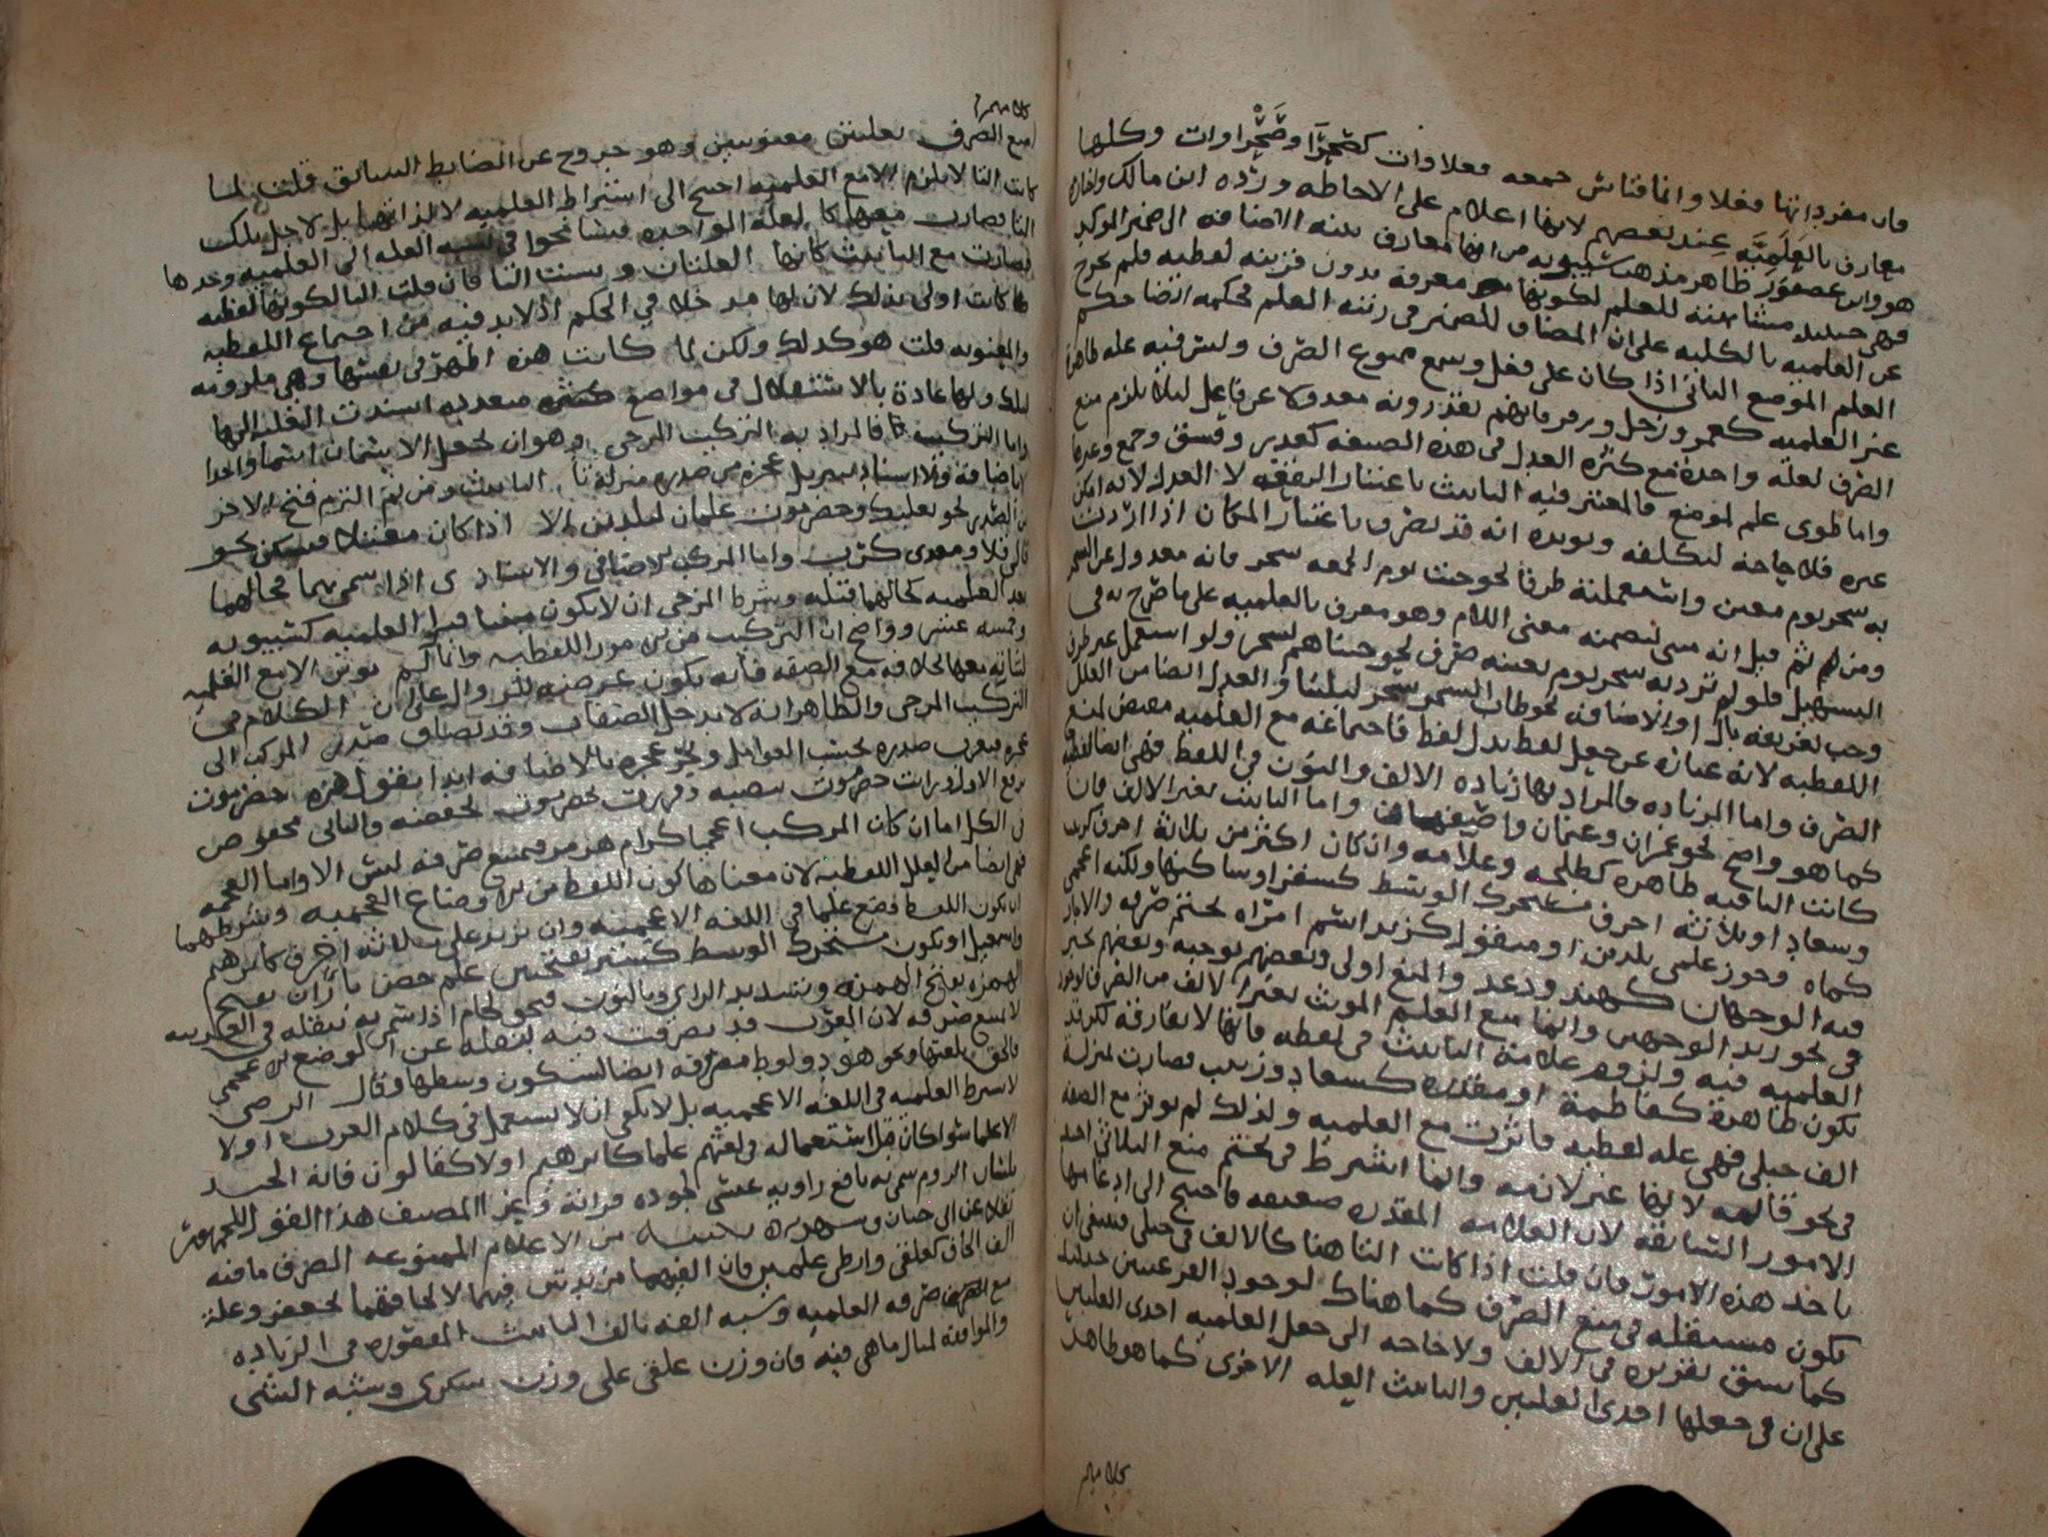 فان مفرداتها فعلا وانما قياس جمعه فعلاوات كصَحْرَآ وصَحْراوات وكلها
معارف بالعَلَميَّه عند بعضهم لانها اعلام على الاحاطه وردّه ابن مالك واختار
هو وابن عصفور ظاهر مذهب سيبويه من انها معارف بنيه الاضافه الى ضمير الموكد
فهي حينيد مشابهته للعلم لكونها معرفه بدون قرينه لفظيه فلم تخرج
عن العلميه بالكليه على ان المضاف للضمير في رتبه العلم فحكمه ايضا حكم
العلم الموضع الثاني اذا كان على فعل وسمع ممنوع الصرف وليس فيه عله ظاهره
غير العلميه كعمر وزحل وزفر فانهم يقدرونه معدولا عن فاعل ليلا يلزم منع
الصرف لعله واحدة مع كثره العدل في هذه الصيغه كغدر وفسق وجمع وغيرها
واما طوى علم لموضع فالمعتبر فيه التانيث باعتبار البقعه لا العدل لانه امكن
غيره فلا حاجه لتكلفه ويويده انه قد يصرف باعتبار المكان اذا اردت
به سحر يوم معين واستعملته ظرفا نحو جئت يوم الجمعه سحر فانه معدول عن السحر
ومن ثم قيل انه مبني لتضمنه معنى اللام وهو معرف بالعلميه على ما صرح به في
التسهيل فلو لم ترد به سحر يوم بعينه صرف نحو نجيناهم بسحر ولو استعمل غير ظرف
وجب تعريفه بال او الاضافه نحو طاب السحر سحر ليلتنا والعدل ايضا من العلل
اللفظيه لانه عباره عن جعل لفظ بدل لفظ فاجتماعه مع العلميه مقتض لمنع
الصرف واما الزياده فالمراد بها زياده الالف والنون في اللفظ فهي ايضا لفظيه
كما هو واضح نحو عمران وعثمان واصبهان واما التانيث بغير الالف فان
كانت التا فيه ظاهره كطلحه وعلامه وان كان اكثر من ثلاثه احرف كزينب
وسعاد او ثلاثه احرف متحرك الوسط كسقر او ساكنها ولكنه اعجمي
كماه وجوز علمي بلدين او منقول كزيد اسم امراه تحتم منع صرفه والا جاز
فيه الوجهان كهند ودعد والمنع اولى وبعضهم يوجبه وبعضهم يجيز
في نحو زيد الوجهين وانما منع العلم المونث بغير الالف من الصرف لوجود
العلميه فيه ولزوم علامة التانيث في لفظه فانها لا تفارقه لكن قد
تكون ظاهرة كفاطمة او مقدره كسعاد وزينب فصارت بمنزلة
الف حبلى فهي عله لفظيه فاثرت مع العلميه ولذلك لم توثر مع الصفه
في نحو قائمه لانها غير لازمه وانما اشترط في تحتم منع الثلاثي احد
الامور السابقه لان العلامه المقدره ضعيفه فاحتيج الى ادعامها
باحد هذه الامور فان قلت اذا كانت التا هنا كالالف في حبلى فينبغي ان
تكون مستقله في منع الصرف كما هناك لوجود الفرعيتين حينيد
كما سبق تقريره في الالف ولا حاجه الى جعل العلميه احدى العلتين
على ان في جعلها احدى العلتين والتانيث العله الاخرى كما هو ظاهر
كلامهم
امنع الصرف بعلتين معنويتين وهو خروج عن الضابط السابق قلت لما
كانت التا لا يلزم الا مع العلميه احتيج الى اشتراط العلميه لا لذاتها بل لاجل تلك
التا فصارت معها كالعله الواحده فتسامحوا في نسبه العله الى العلميه وحدها
فصارت مع التانيث كانها العلتان ونسبت التا فان قلت التا لكونها لفظيه
كانت اولى بذلك لان لها مدخلا في الحكم اذ لا بد فيه من اجتماع اللفظيه
والمعنويه قلت هو كذلك ولكن لما كانت هذه اظهر في نفسها وهي ملزومه
لتلك ولها عادة بالاستقلال في مواضع كثيره متعدده اسندت العله اليها
واما التركيب فالمراد به التركيب المزجي وهو ان تجعل الاسمان اسما واحدا
لا باضافه ولا اسناد بتنزيل عجزه من صدره منزله تا التانيث ومن ثم التزم فتح الاخر
من الصدر نحو بعلبك وحضرموت علمان لبلدين الا اذا كان معتلا فيسكن نحو
قالي قلا ومعدي كرب واما المركب الاضافي والاسنادي اذا سمي بهما فحالهما
بعد العلميه كحالهما قبله وشرط المزجي ان لا يكون مبنيا قبل العلميه كسيبويه
وخمسه عشر وواضح ان التركيب من الامور اللفظيه وانما لم يوثر الا مع العلميه
لثباته معها بخلافه مع الصفه فانه يكون عرضه للزوال على ان الكلام في
التركيب المزجي والظاهر انه لا يدخل الصفات وقد يضاف صدر المركب الى
عجزه فيعرب صدره بحسب العوامل ويجر عجزه بالاضافه ابدا تقول هذه حضرموت
برفع الاول ورايت حضرموت بنصبه ومررت بحضرموت بخفضه والثاني مخفوض
في الكل اما ان كان المركب اعجميا كرام هرمز فيمتنع صرفه ليس الا واما العجمه
فهي ايضا من العلل اللفظيه لان معناها كون اللفظ من اوضاع العجميه وشرطهما
ان يكون اللفظ وضع علما في اللغه الاعجميه وان يزيد على ثلاثه احرف كابرهيم
واسمعيل او يكون متحرك الوسط كشتر بفتحتين علم حصن باران بفتح
الهمزه وتشديد الراي وبالنون فنحو لجام اذا سمي به نبقله في العربيه
لا يمنع صرفه لان العرب قد تصرفت فيه بنقله عن الوضع الاعجمي
فالحق بلغتها ونحو هود ولوط مصرفه ايضا لسكون وسطها وقال الرضي
لا يشرط العلميه في اللغه الاعجميه بل لا يكفي ان لا يستعمل في كلام العرب اولا
الا علما سوا كان قبل استعماله في لغتهم علما كابرهيم اولا كقالون فانه الجيد
بلسان الروم سمي به نافع راويه عيسى لجوده قرانه وعزا المصنف هذا القول للجمهور
نقلا عن ابي حيان من الاعلام الممنوعه الصرف ما فيه
الف الحاق كعلقى وارطى علمين فان الفهما مزيدتين فيهما لالحاقهما بجعفر وعلة
منع صرفه العلميه وشبه الفه بالف التانيث المقصوره في الزياده
والموافقه لمثال ما هي فيه فان وزن علقى على وزن سكرى وشبه الشي